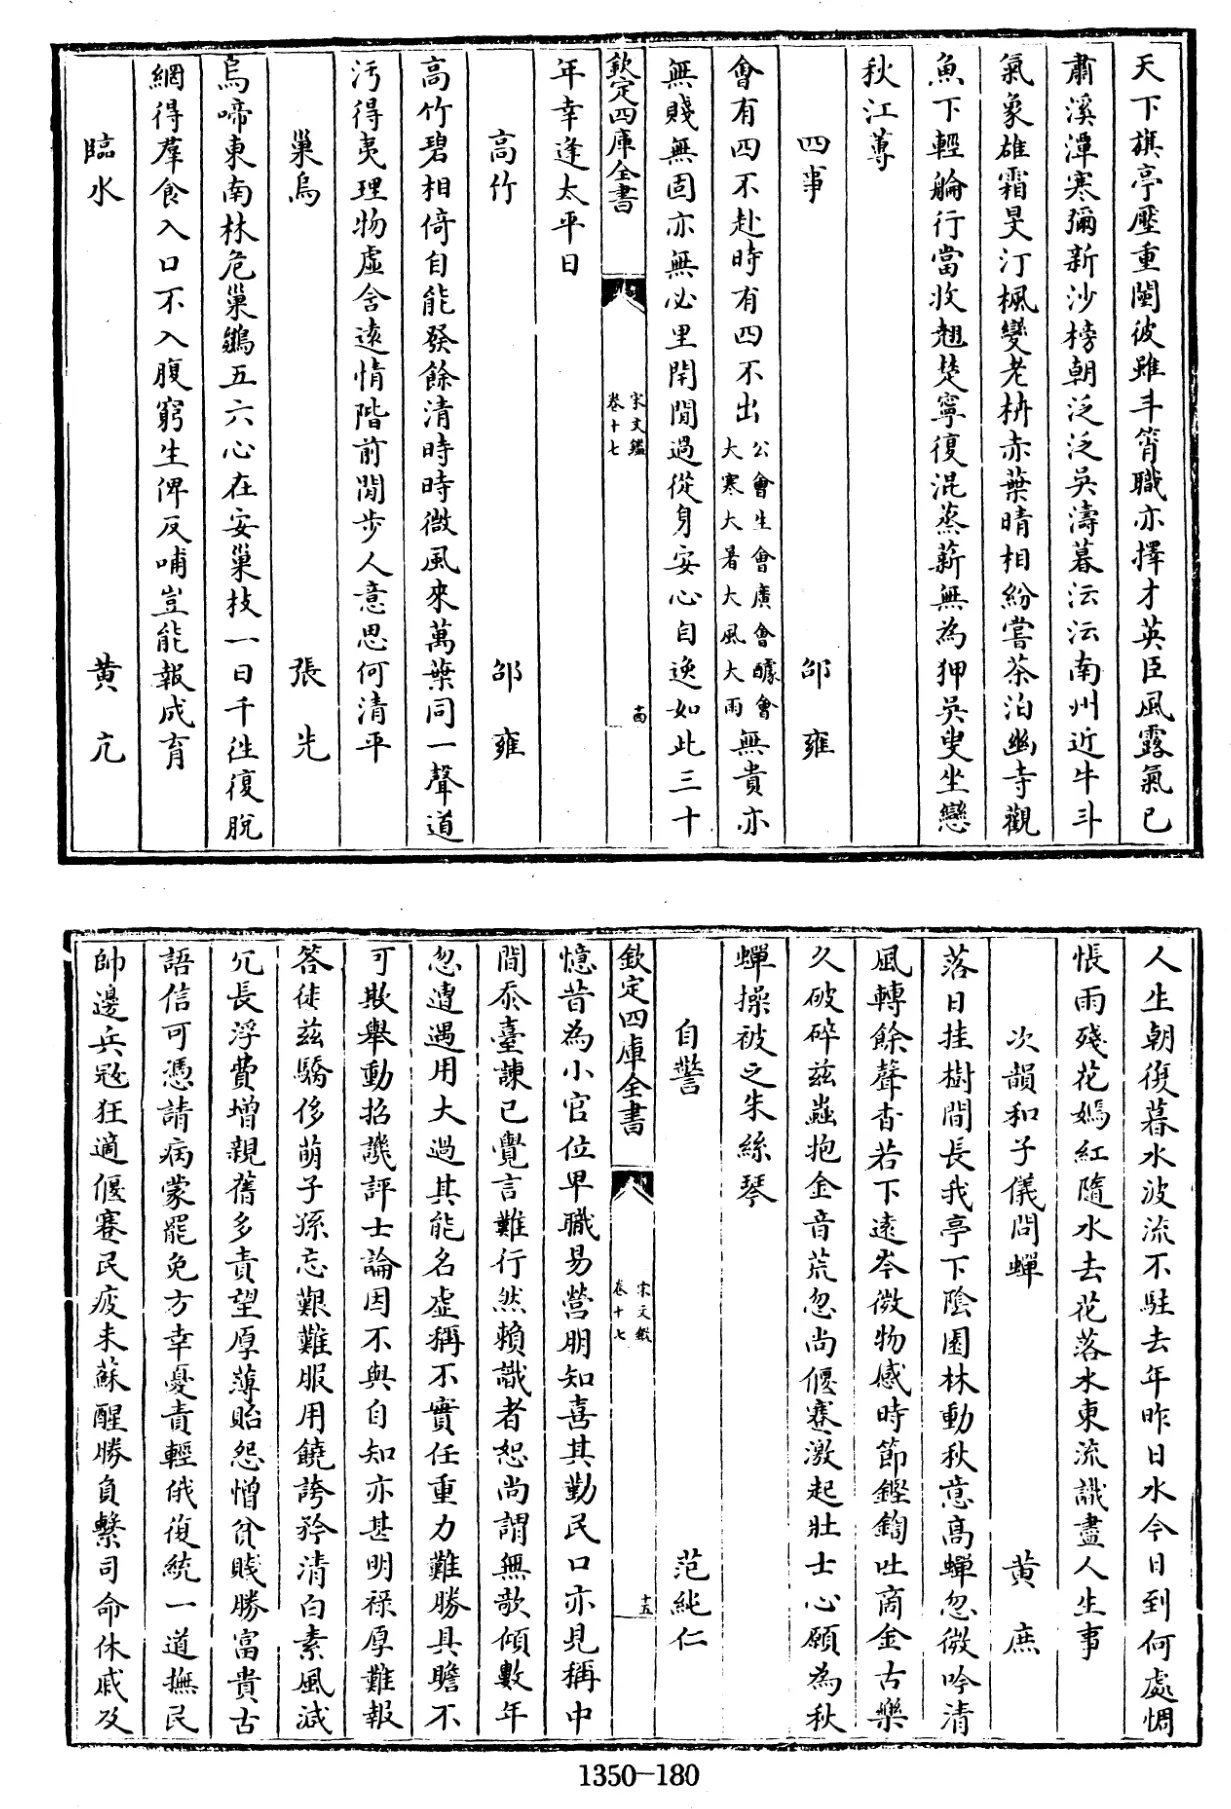 天下旗亭壓重闉彼雖斗筲職亦擇才英臣風露氣已
肅溪潭寒彌新沙榜朝泛泛吳濤暮沄沄南州近牛斗
氣象雄霜旻汀楓變老枿赤葉晴相紛嘗茶泊幽寺觀
魚下輕綸行當收翹楚寧復混蒸薪無為狎吳叟坐戀
秋江蓴
四事 邵雍
會有四不赴時有四不出公會生會廣會醵會大寒大暑大風大雨無貴亦
無賤無固亦無必里閈閒過從身安心自逸如此三十
欽定四庫全書 宋文鑑 卷十七 十四
年幸逢太平日
高竹 邵雍
高竹碧相倚自能發餘清時時微風來萬葉同一聲道
污得夷理物虛含遠情階前閒步人意思何清平
巢烏 張先
烏啼東南林危巢鶵五六心在安巢枝一日千徃復脫
網得羣食入口不入腹窮生俾反哺豈能報成育
臨水 黄亢
人生朝復暮水波流不駐去年昨日水今日到何處惆
悵雨殘花嫣紅隨水去花落水東流識盡人生事
次韻和子儀問蟬 黄庶
落日挂樹間長我亭下陰園林動秋意高蟬忽微吟清
風轉餘聲杳若下遠岑微物感時節鏗鍧吐商金古樂
久破碎兹蟲抱金音荒忽尚偃蹇激起壯士心願為秋
蟬操被之朱絲琴
自警 范純仁
欽定四庫全書 宋文鑑 卷十七 十五
憶昔為小官位卑職易營朋知喜其勤民口亦見稱中
間忝臺諫已覺言難行然賴識者恕尚謂無欹傾數年
忽遭遇用大過其能名虛稱不實任重力難勝具瞻不
可欺舉動招譏評士論固不與自知亦甚明祿厚難報
答徒兹驕侈萌子孫忘艱難服用饒誇矜清白素風減
冗長浮費增親舊多責望厚薄貽怨憎貧賤勝富貴古
語信可憑請病蒙罷免方幸憂責輕俄復統一道撫民
帥邊兵冦狂適偃蹇民疲未蘇醒勝負繫司命休戚及
1350-180